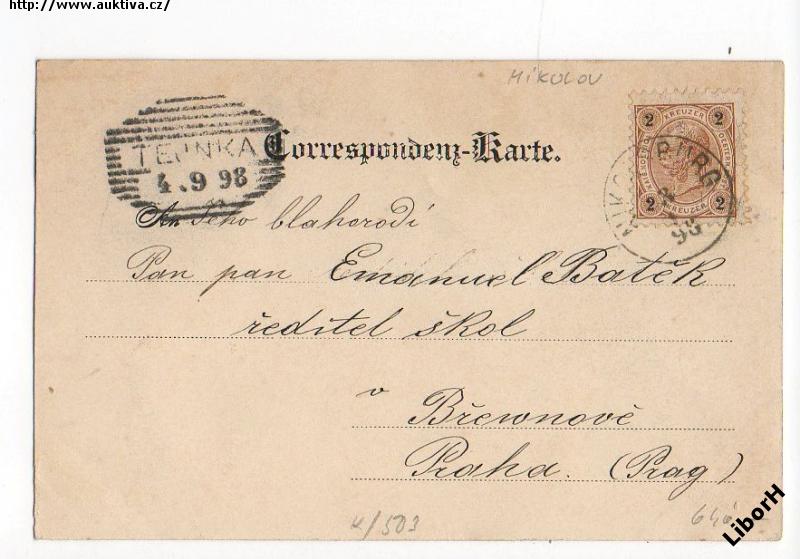 http://www.auktiva.cz/
MIKULOV
2 KREUZER 2
2 KREUZER 2
NIKOLSBURG
98
TEJNKA
4.9 98
Correspondenz-Karte.
An Jeho blahorodí
Pan pan Emanuel Batěk
ředitel škol
v
Břewnově
Praha. (Prag)
K/503
LiborH